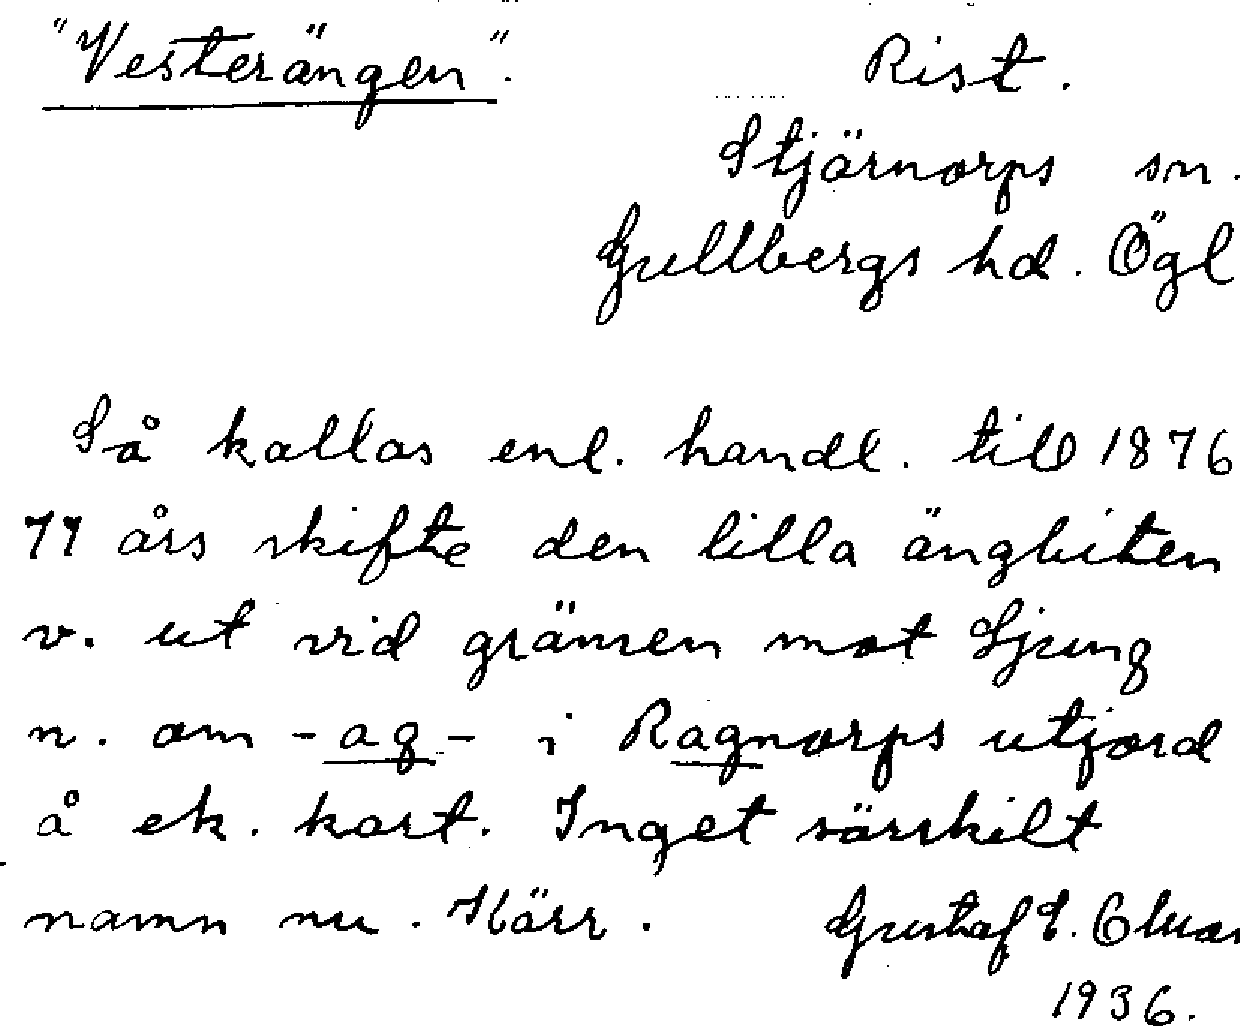 "Vesterängen". Rist.
Stjärnorps sn.
Gullbergs hd. Ögl
Så kallas enl. handl. till 1876
77 års skifte den lilla ängbiten
v. ut vid gränsen mot Ljung
n. om - ag - i Ragnorps utjord
å ek. kart. Inget särskilt
namn nu. Kärr. Gustaf
1936.